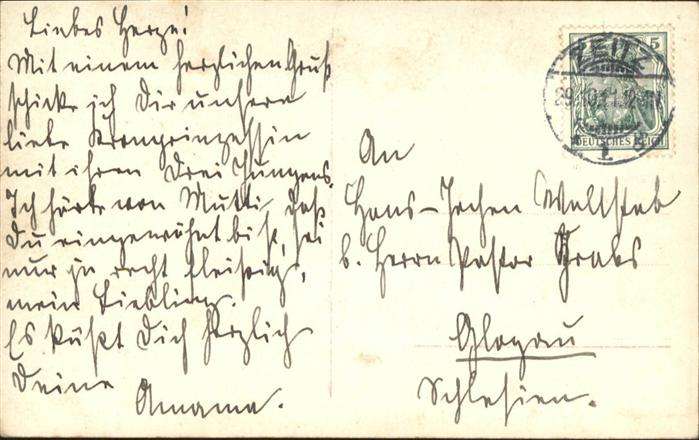 Liebes Herze!
Mit einem herzlichen Gruß
schicke ich Dir unsere
liebe Kronprinzessin
mit ihren drei Jungens.
Ich hörte von Mutti, daß
Du eingewöhnt bist, sei
nur ja recht fleißig,
mein Liebling.
Es küßt Dich herzlich
Deine
Amama.
An
Hans-Jochen
b. Herrn Pastor
Glogau
Schlesien.
5
ZEITZ
DEUTSCHES REICH